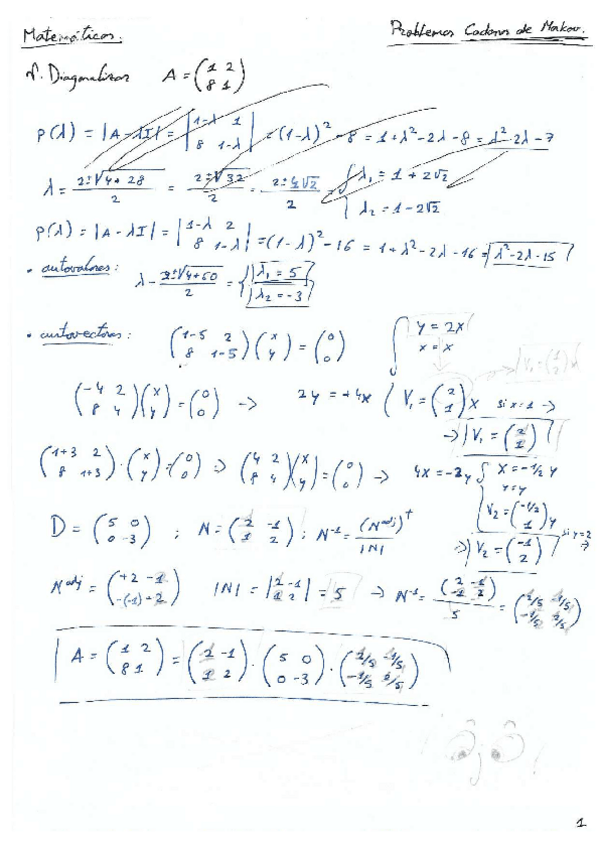 Matemáticas.
Problemas Cadenas de Markov.
1. Diagonalizar A = (1 2; 8 1)
p(λ) = |A - λI| = |1-λ 1; 8 1-λ| = (1-λ)² - 8 = 1 + λ² - 2λ - 8 = λ² - 2λ - 7
λ = (2 ± √(4+28))/2 = (2 ± √32)/2 = (2 ± 4√2)/2 { λ₁ = 1 + 2√2
λ₂ = 1 - 2√2
p(λ) = |A - λI| = |1-λ 2; 8 1-λ| = (1-λ)² - 16 = 1 + λ² - 2λ - 16 = λ² - 2λ - 15
• autovalores: λ = (2 ± √(4+60))/2 = { λ₁ = 5
λ₂ = -3
• autovectores: (1-5 2; 8 1-5)(x; y) = (0; 0) { y = 2x
x = x
(-4 2; 8 4)(x; y) = (0; 0) → 2y = +4x ( V₁ = (2; 1)x si x=1 →
→ V₁ = (2; 1)
(1+3 2; 8 1+3)·(x; y) = (0; 0) ⇒ (4 2; 8 4)(x; y) = (0; 0) → 4x = -2y { x = -1/2 y
y = y
V₂ = (-1/2; 1)y si y=2 ⇒
⇒ V₂ = (-1; 2)
D = (5 0; 0 -3) ; N = (2 -1; 1 2) ; N⁻¹ = (N^adj)^t / |N|
N^adj = (+2 -1; -(-1) +2) |N| = |2 -1; 1 2| = 5 → N⁻¹ = (2 -1; -1 2)/5 =
A = (1 2; 8 1) = (1 -1; 1 2) · (5 0; 0 -3) ·
1